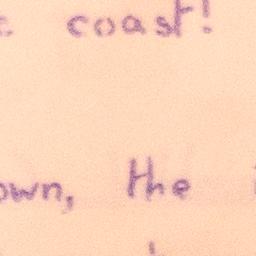 coast!
own, the